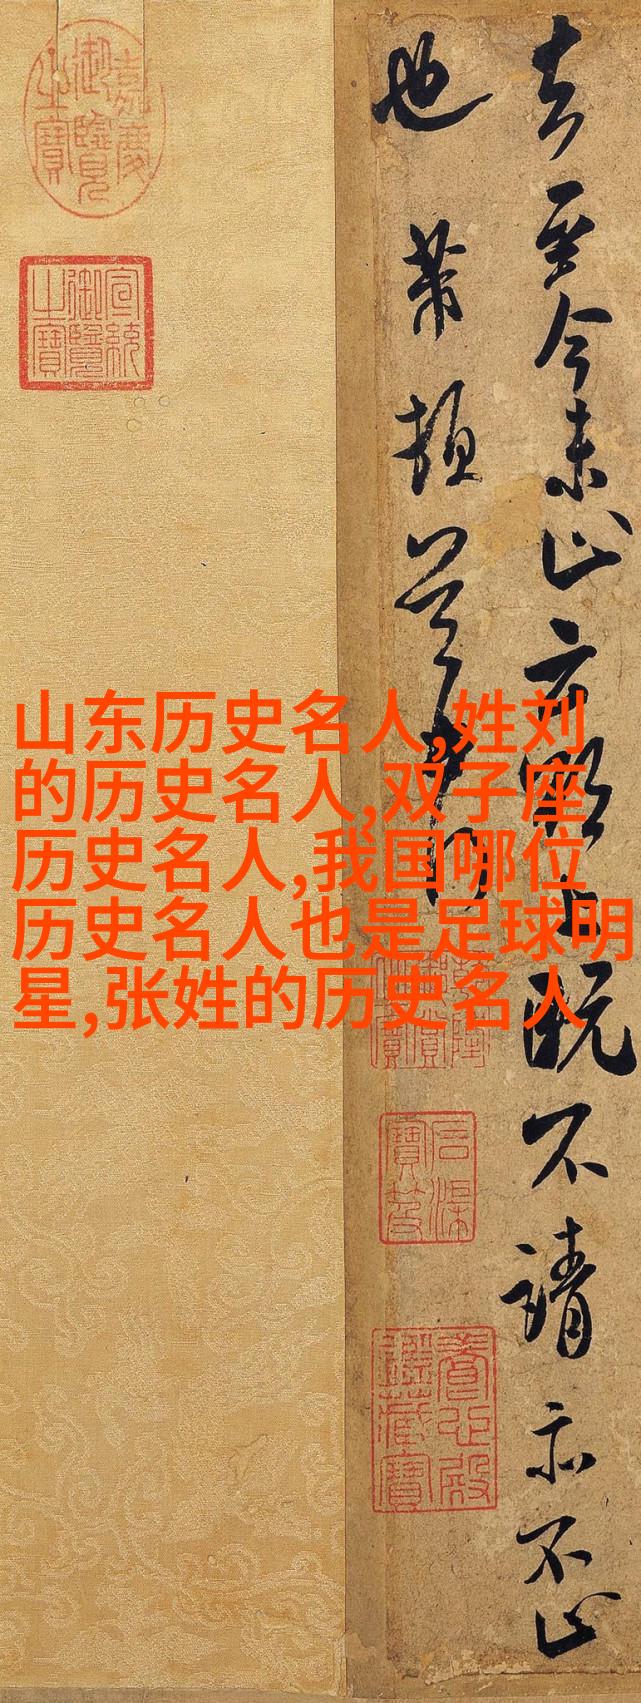 山东历史名人,姓刘
的历史名人,双子座
历史名人,我国哪位
历史名人也是足球明
星,张姓的历史名人
去至今未止亦 既不請亦不止
也 芾頓首
嘉慶御覽之寶
宣統御覽之寶
石渠寶笈
養心殿鑑藏寶